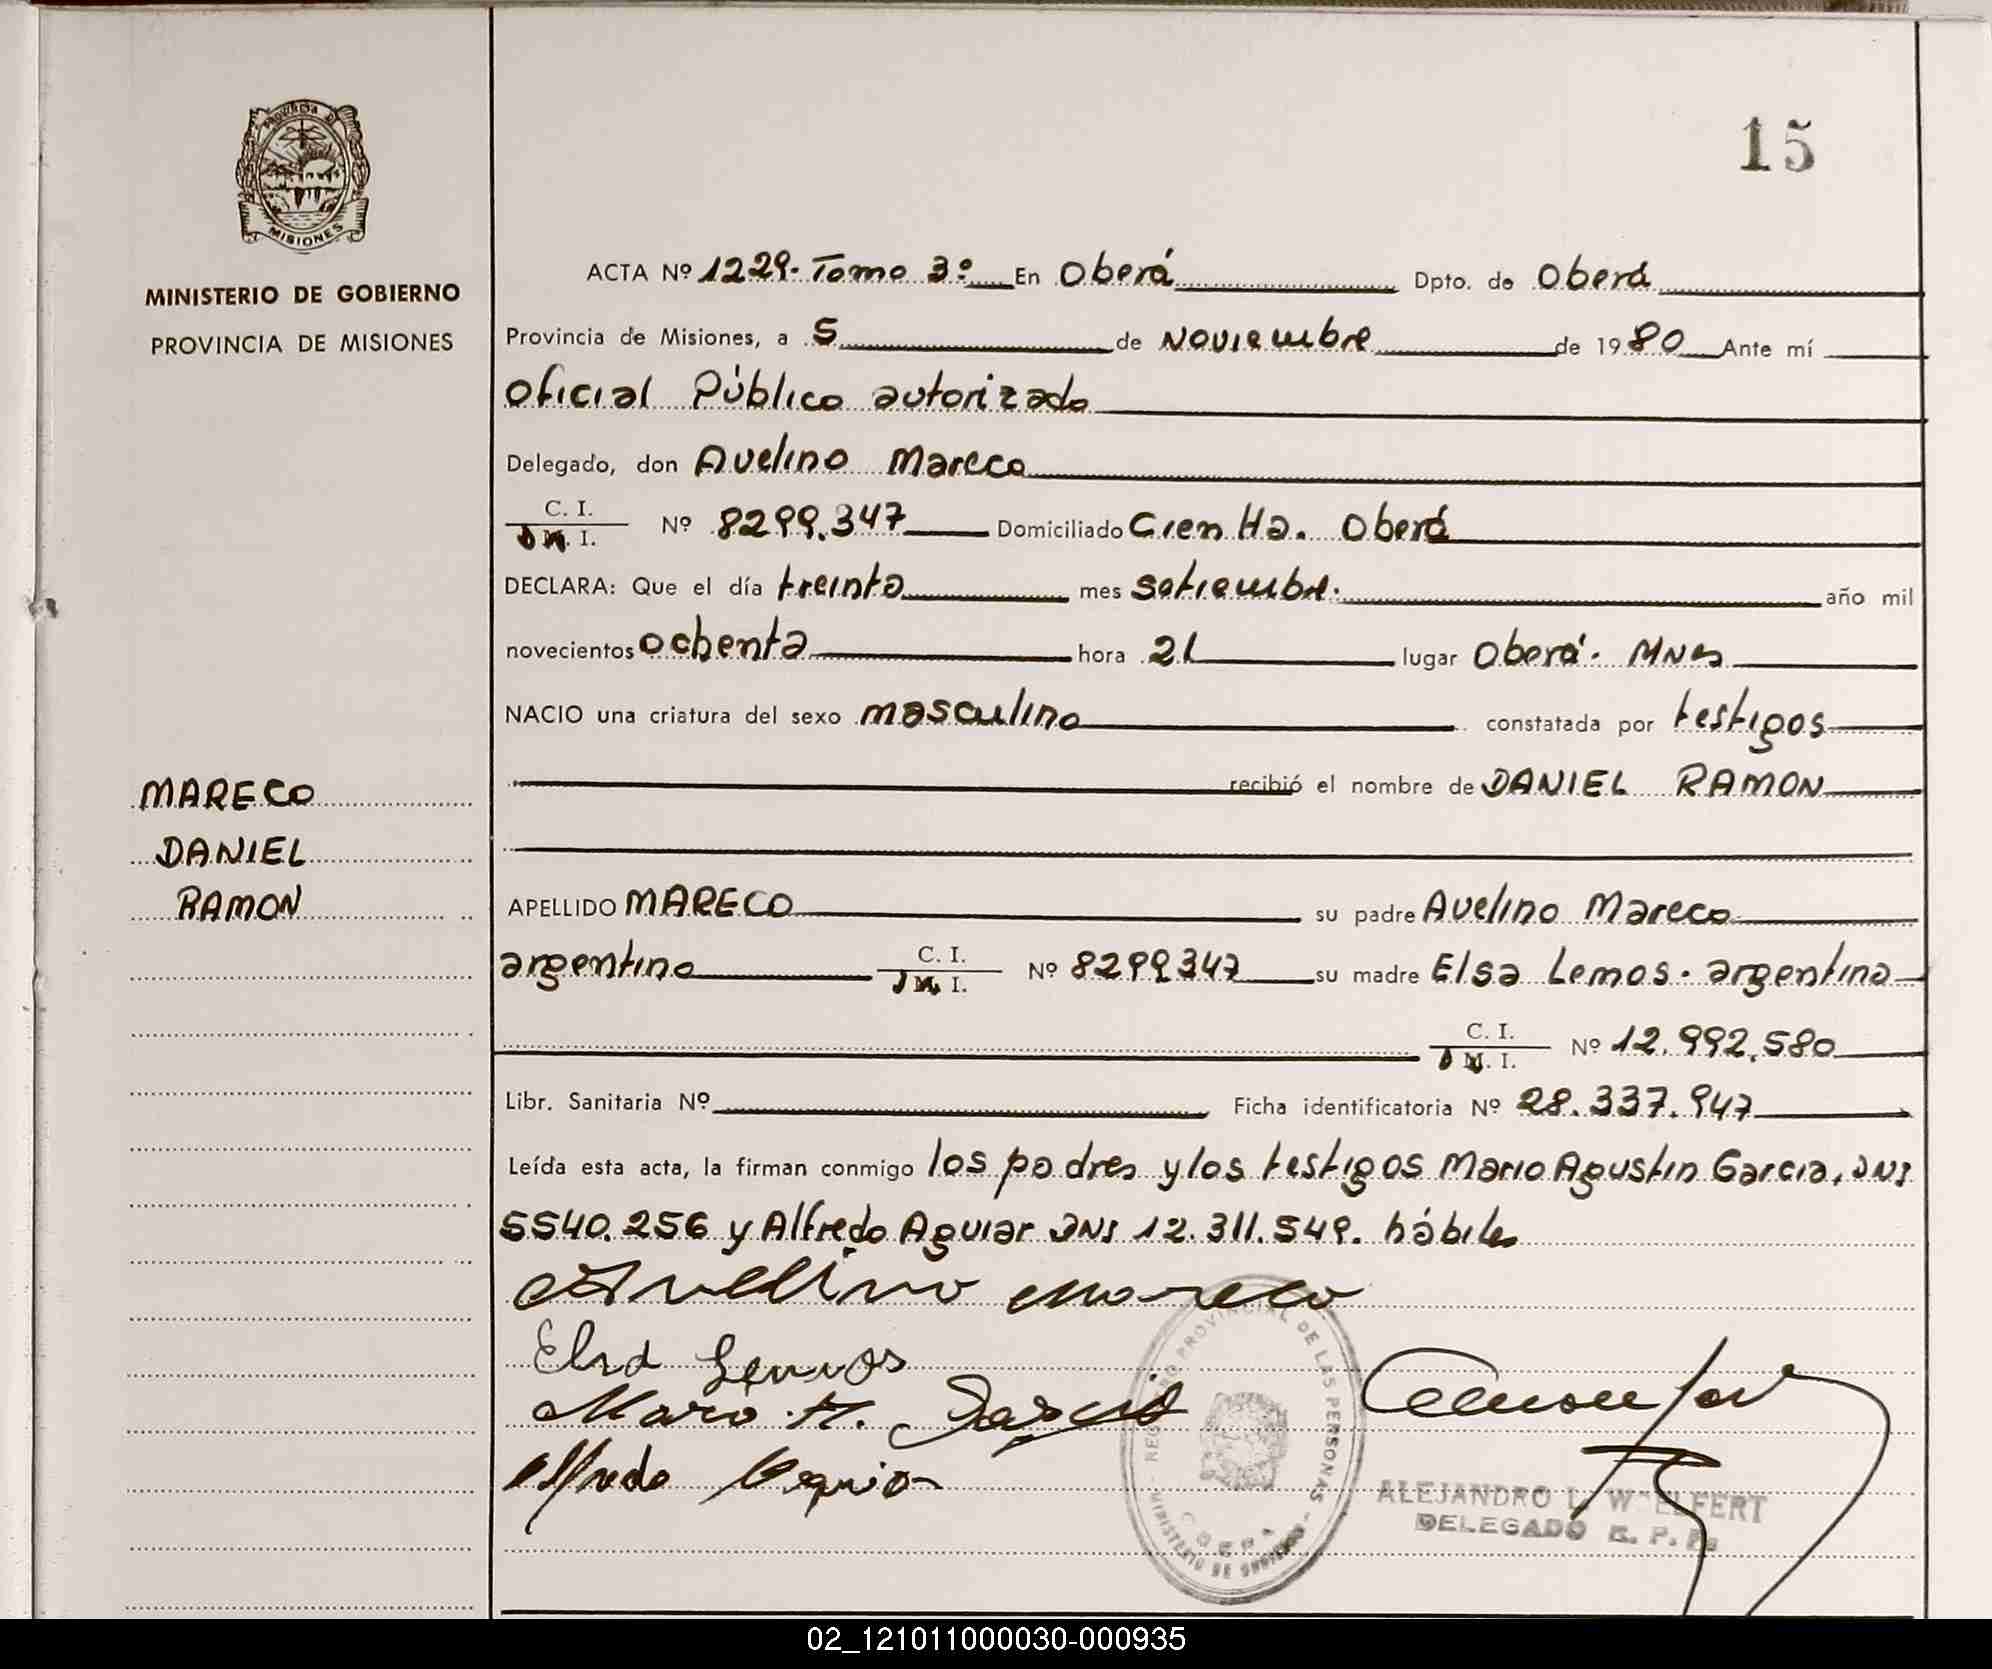 15
PROVINCIA D
MISIONES
MINISTERIO DE GOBIERNO
PROVINCIA DE MISIONES
MARECO
DANIEL
RAMON
ACTA Nº 1229. Tomo 3º En Oberá Dpto. de Oberá
Provincia de Misiones, a 5 de Noviembre de 1980 Ante mí
Oficial Público autorizado
Delegado, don Avelino Mareco
C. I.
D N. I. Nº 8299.347 Domiciliado Cien Ha. Oberá
DECLARA: Que el día treinta mes setiembre. año mil
novecientos ochenta hora 21 lugar Oberá. Mnes
NACIO una criatura del sexo masculino constatada por testigos
recibió el nombre de DANIEL RAMON
APELLIDO MARECO su padre Avelino Mareco
argentino C. I.
D N. I. Nº 8299347 su madre Elsa Lemos. argentina
C. I.
D N. I. Nº 12.992.580
Libr. Sanitaria Nº Ficha identificatoria Nº 28.337.947
Leída esta acta, la firman conmigo los padres y los testigos Mario Agustin Garcia, DNI
5540.256 y Alfredo Aguiar DNI 12.311.549. hábiles
Avelino Mareco
Elsa Lemos
Mario A. Garcia
Alfredo Aguiar
REGISTRO PROVINCIAL DE LAS PERSONAS
MINISTERIO DE GOBIERNO
OBERA
ALEJANDRO L. WOELFERT
DELEGADO R. P. P.
02_121011000030-000935